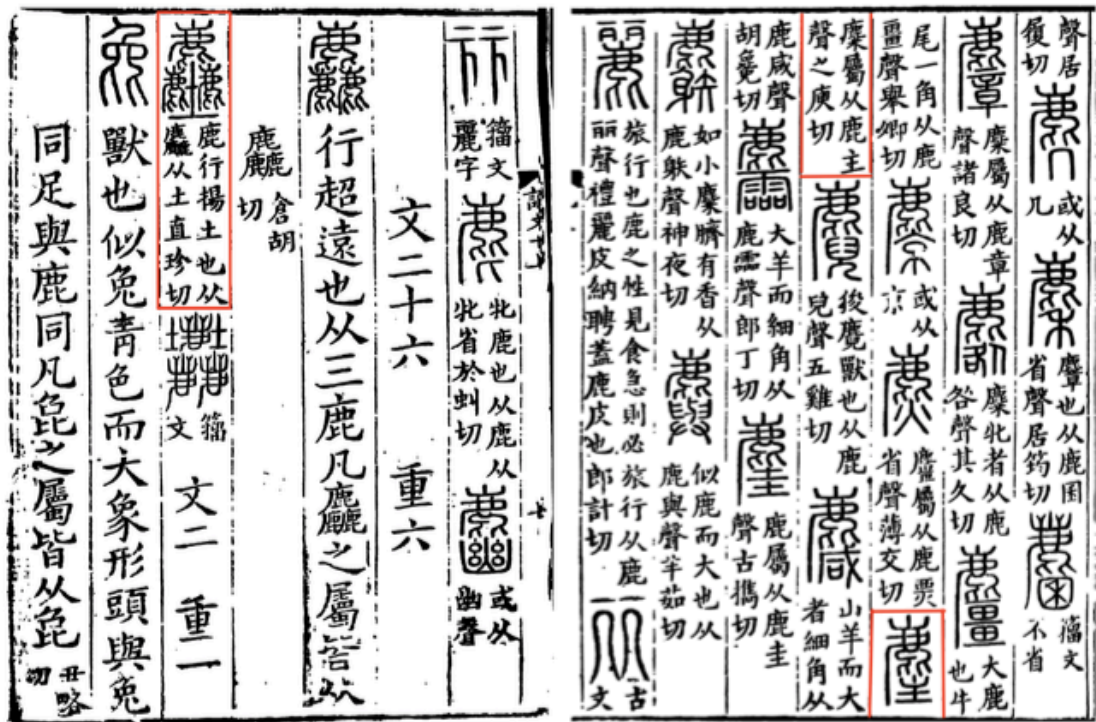 聲居履切 麂 或从几 麇 麞也从鹿囷省聲居筠切 籒文不省
麞 麋屬从鹿章聲諸良切 麔 麋牝者从鹿咎聲其久切 麠 大鹿也牛
尾一角从鹿畺聲舉卿切 麖 或从京 麃 麠屬从鹿票省聲薄交切 麈
麋屬从鹿主聲之庾切 麑 狻麑獸也从鹿兒聲五雞切 麙 山羊而大者細角从
鹿咸聲胡毚切 麢 大羊而細角从鹿霝聲郎丁切 鹿屬从鹿圭聲古攜切
麝 如小麋臍有香从鹿䠶聲神夜切 似鹿而大也从鹿與聲羊茹切
麗 旅行也鹿之性見食急則必旅行从鹿丽聲禮麗皮納聘蓋鹿皮也郎計切 古文
籒文麗字 麀 牝鹿也从鹿从牝省於虯切 或从幽聲
文二十六 重六
麤 行超遠也从三鹿凡麤之屬皆从
麤 倉胡切
塵 鹿行揚土也从麤从土直珍切 籒文 文二 重一
㲋 獸也似兔青色而大象形頭與兔
同足與鹿同凡㲋之屬皆从㲋 丑略切